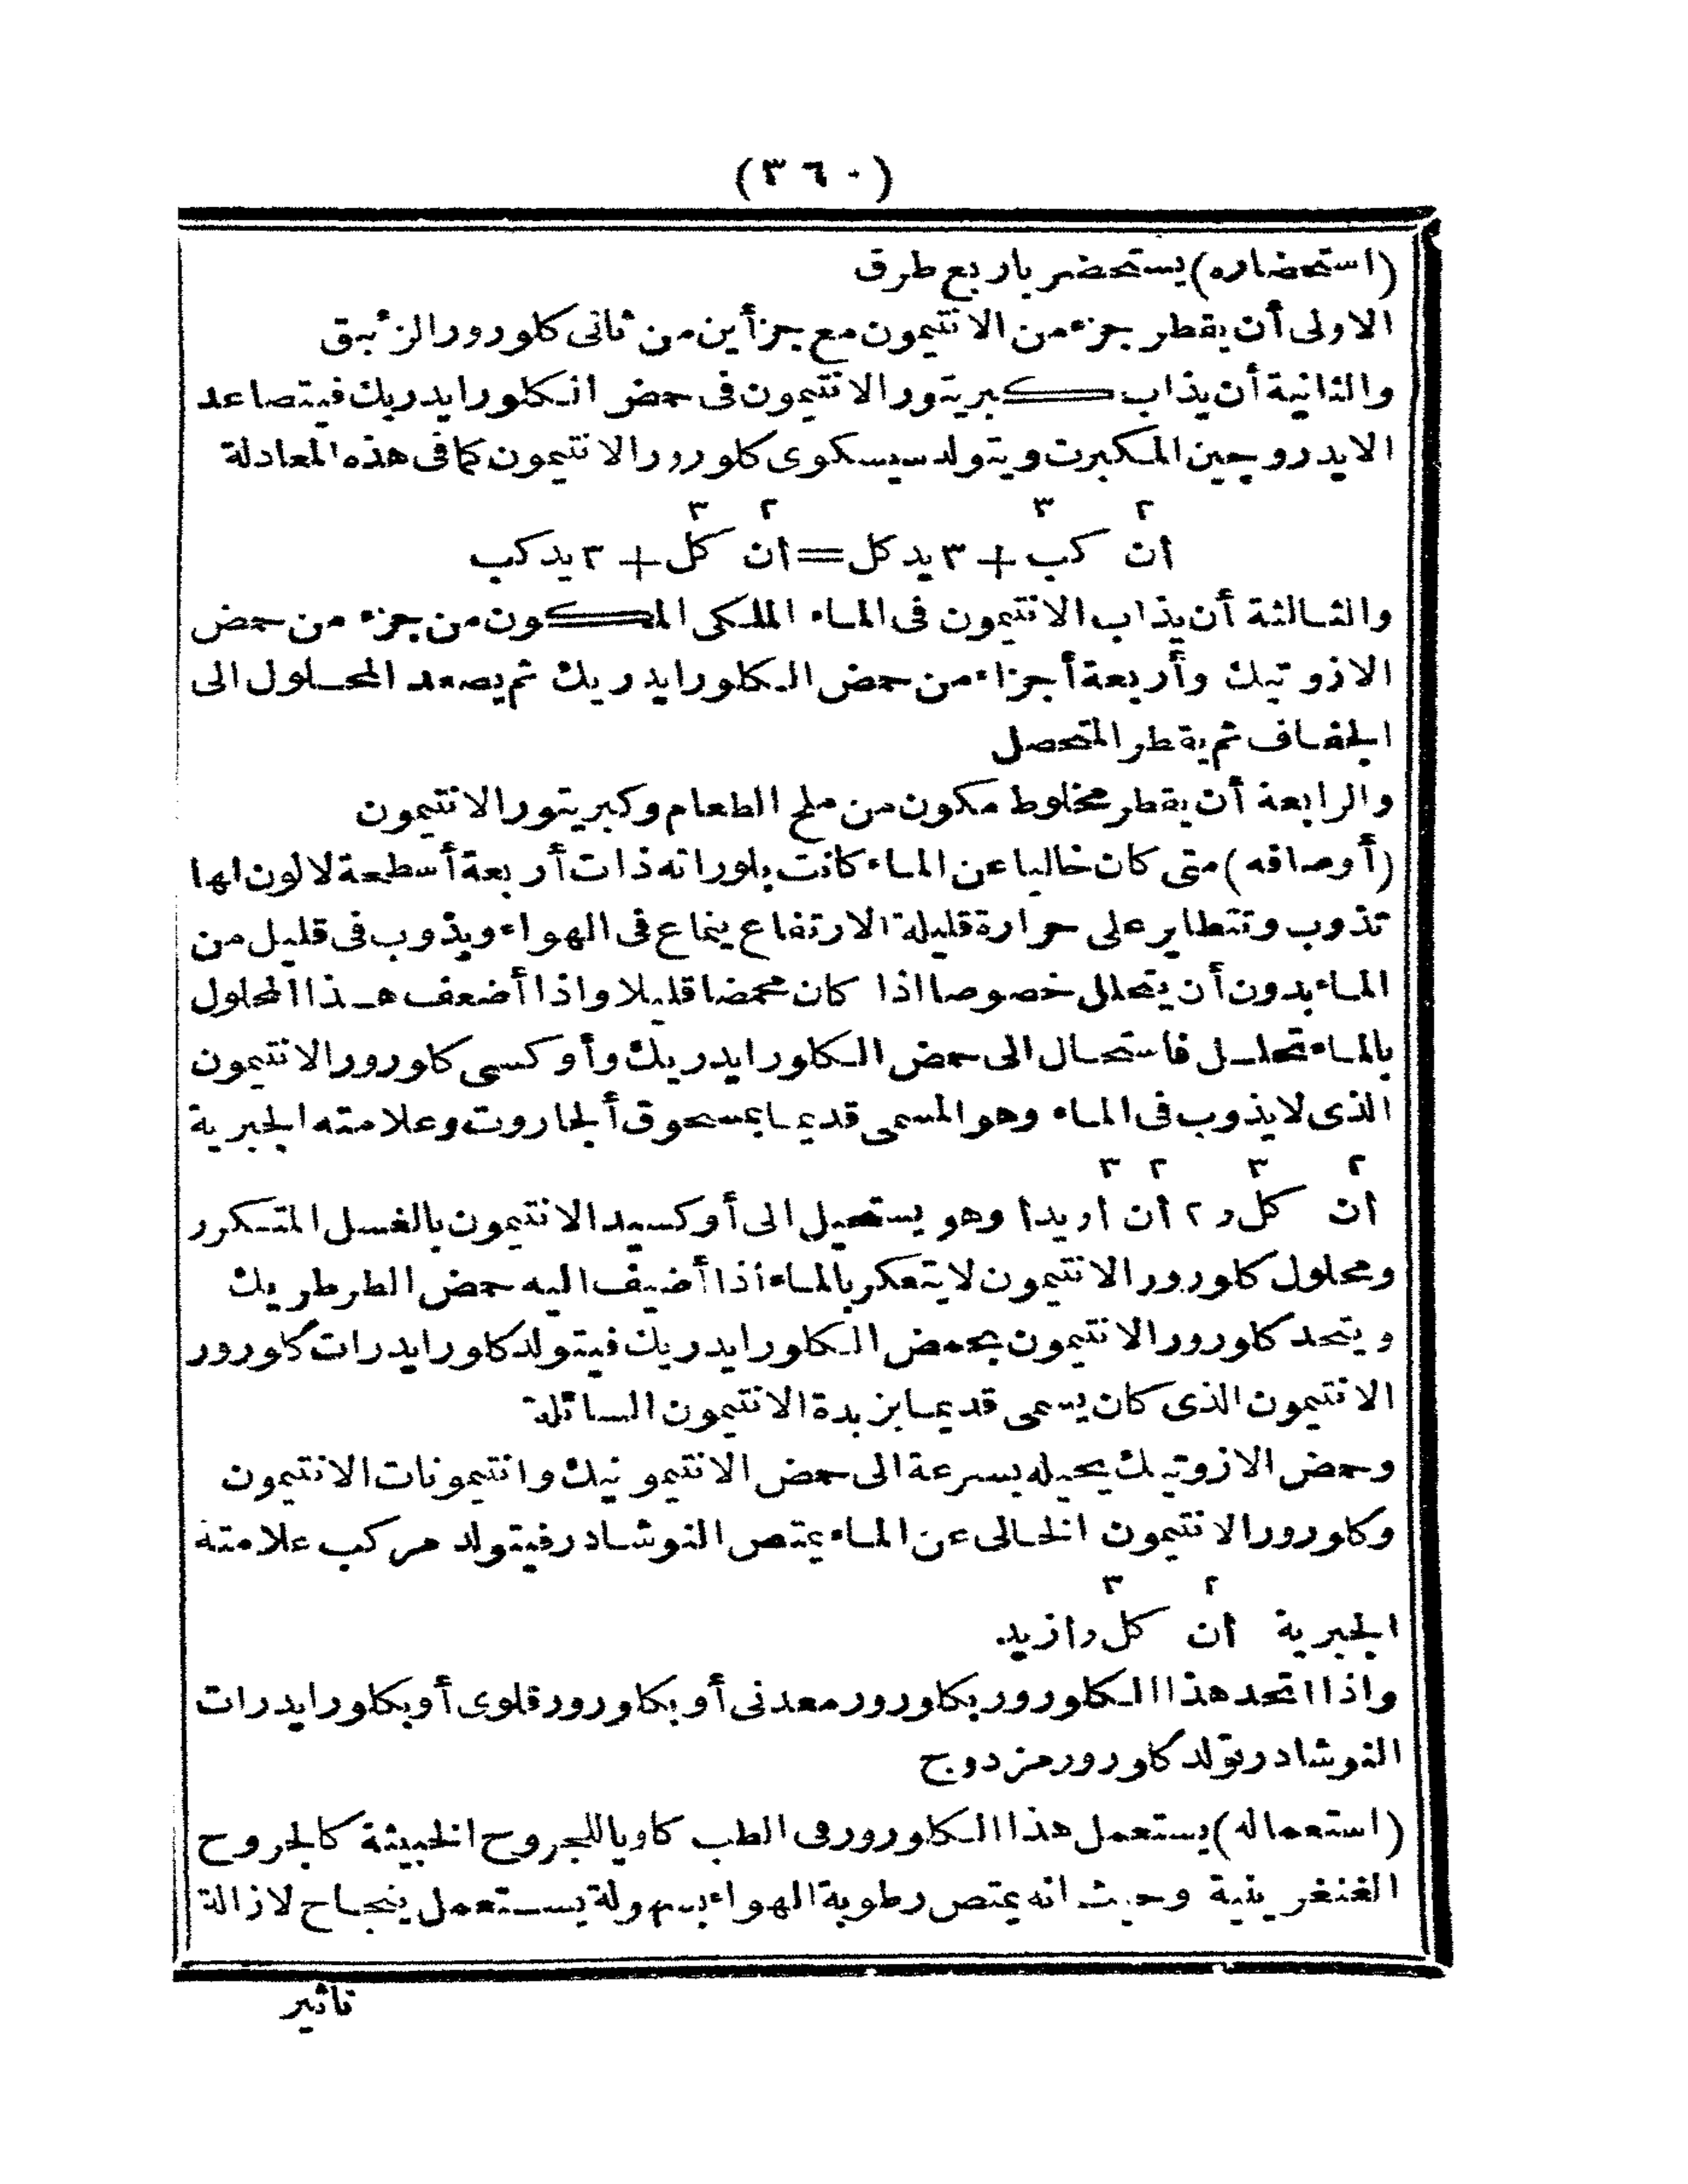 (٣٦٠)
(استحضاره) يستحضر باربع طرق
الاولى أن يقطر جزء من الانتيمون مع جزأين من ثانى كلورور الزئبق
والثانية أن يذاب كبريتور الانتيمون فى حمض الكلورايدريك فيتصاعد
الايدروجين المكبرت ويتولد سيسكوى كلورور الانتيمون كما فى هذه المعادلة
٢ ٣ ٢ ٣
أن كب + ٣ يد كل = أن كل + ٣ يد كب
والثالثة أن يذاب الانتيمون فى الماء الملكى المكون من جزء من حمض
الازوتيك وأربعة أجزاء من حمض الكلورايدريك ثم يصعد المحلول الى
الجفاف ثم يقطر المتحصل
والرابعة أن يقطر مخلوط مكون من ملح الطعام وكبريتور الانتيمون
(أوصافه) متى كان خاليا عن الماء كانت بلوراته ذات أربعة أسطحة لا لون لها
تذوب وتتطاير على حرارة قليلة الارتفاع ينماع فى الهواء ويذوب فى قليل من
الماء بدون أن يتحلل خصوصا اذا كان محمضا قليلا واذا أضعف هذا المحلول
بالماء تحلل فاستحال الى حمض الكلورايدريك وأوكسى كلورور الانتيمون
الذى لا يذوب فى الماء وهو المسمى قديما بمسحوق ألجاروت وعلامته الجبرية
٢ ٣ ٢ ٣
أن كل و ٢ أن ا و يدا وهو يستحيل الى أوكسيد الانتيمون بالغسل المتكرر
ومحلول كلورور الانتيمون لا يتعكر بالماء اذا أضيف اليه حمض الطرطريك
ويتحد كلورور الانتيمون بحمض الكلورايدريك فيتولد كلورايدرات كلورور
الانتيمون الذى كان يسمى قديما بزبدة الانتيمون السائلة
وحمض الازوتيك يحيله بسرعة الى حمض الانتيمونيك وانتيمونات الانتيمون
وكلورور الانتيمون الخالى عن الماء يمتص النوشادر فيتولد مركب علامته
٢ ٣
الجبرية أن كل و ازيد
واذا اتحد هذا الكلورور بكلورور معدنى أو بكلورور قلوى أو بكلورايدرات
النوشادر تولد كلورور مزدوج
(استعماله) يستعمل هذا الكلورور فى الطب كاويا للجروح الخبيثة كالجروح
الغنغرينية وحيث انه يمتص رطوبة الهواء بسهولة يستعمل بنجاح لازالة
تاثير